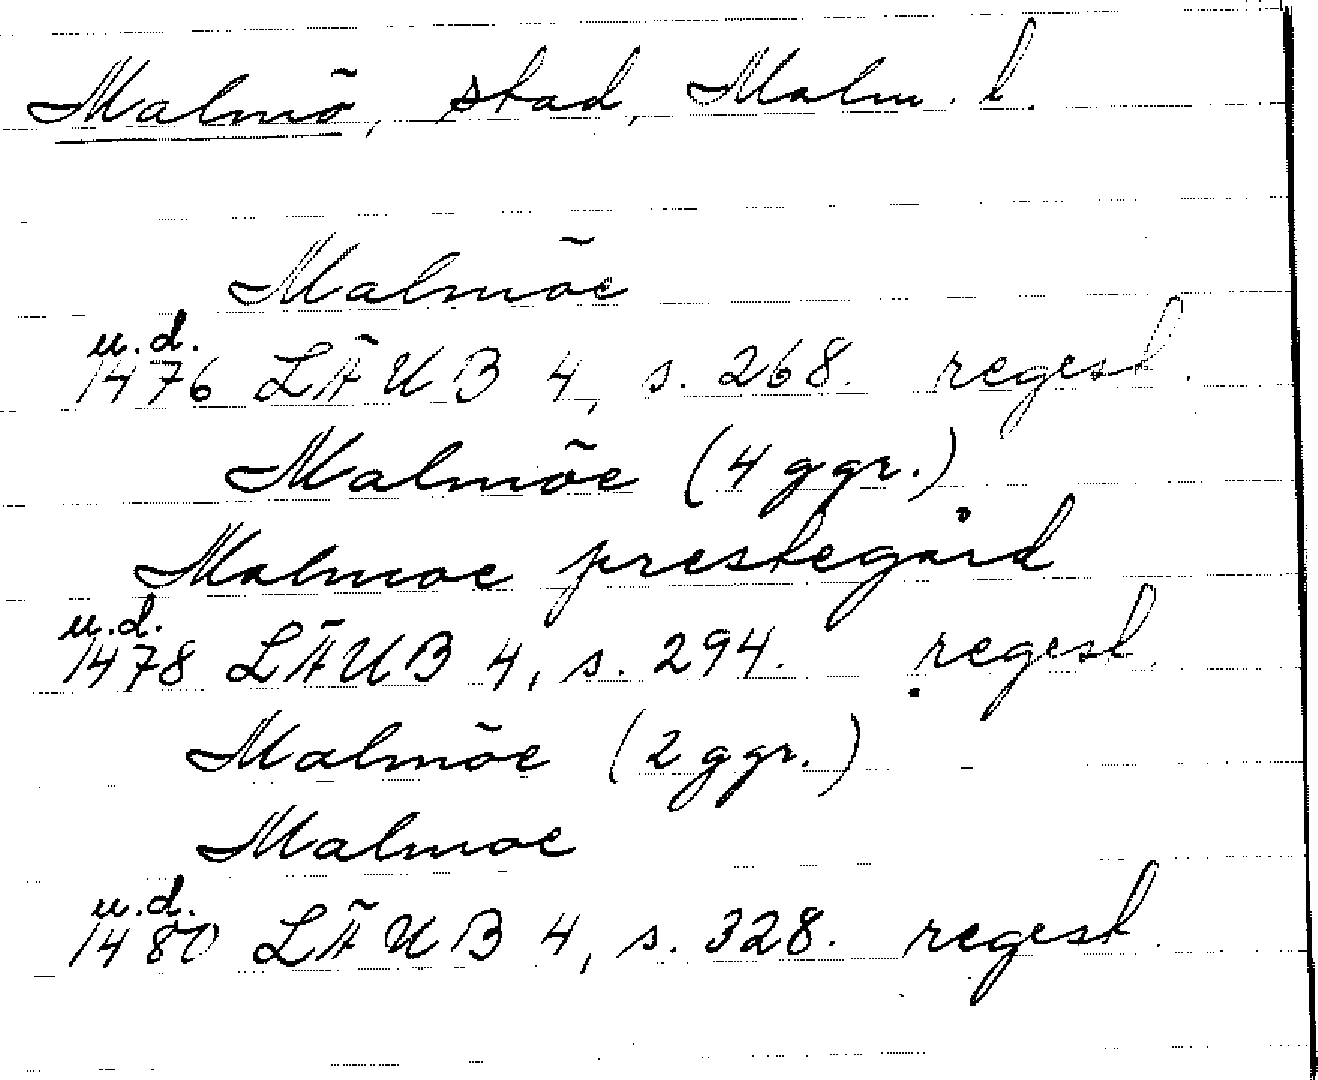 Malmö, stad, Malm. l.
Malmöe
u.d.
1476 LÄUB 4, s. 268. regest.
Malmöe (4 ggr.)
Malmoe prestegård
u.d.
1478 LÄUB 4, s. 294. regest.
Malmöe (2 ggr.)
Malmoe
u.d.
1480 LÄUB 4, s. 328. regest.